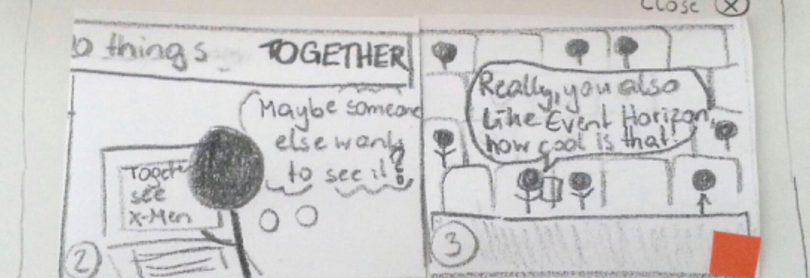 Close X
o things TOGETHER
Maybe someone
else wants
to see it?
Togeth
see
X-Men
2
Really, you also
like Event Horizon,
how cool is that!
3